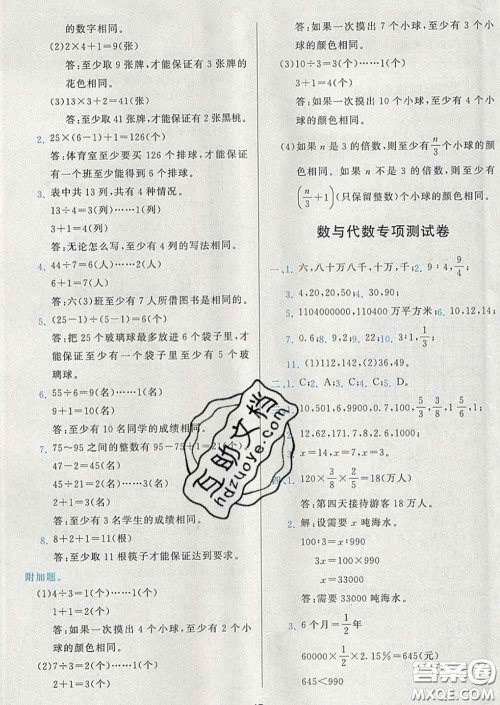 的数字相同。
(2)2×4+1=9(张)
答:至少取 9 张牌,才能保证有 3 张牌的
花色相同。
(3)13×3+2=41(张)
答:至少取 41 张牌,才能保证有2张黑桃。
2. 25×(6-1)+1=126(个)
答:体育室至少要买 126 个排球,才能保证有一
个班至少能得到 6 个排球。
3. 表中共 13 列,共有 4 种情况。
13÷4=3(列)……1(列)
3+1=4(列)
答:无论怎么写,至少有 4 列的写法相同。
4. 44÷7=6(人)……2(人)
6+1=7(人)
答:六(3)班至少有 7 人所借图书是相同的。
5. (25-1)÷(5-1)=6(个)
答:把 25 个玻璃球最多放进 6 个袋子里,才
能保证至少有一个袋子里至少有 5 个玻
璃球。
6. 55÷6=9(名)……1(名)
9+1=10(名)
答:至少有 10 名同学的成绩相同。
7. 75~95 之间的整数有 95-75+1=21(个)
47-2=45(名)
45÷21=2(名)……3(名)
2+1=3(名)
答:至少有 3 名学生的成绩相同。
8. 8+2+1=11(根)
答:至少取 11 根筷子才能保证达到要求。
附加题。
(1)4÷3=1(个)……1(个)
1+1=2(个)
答:如果一次摸出 4 个小球,至少有 2 个小
球的颜色相同。
(2)7÷3=2(个)……1(个)
2+1=3(个)
答:如果一次摸出 7 个小球,至少有 3 个小
球的颜色相同。
(3)10÷3=3(个)……1(个)
3+1=4(个)
答:如果一次摸出 10 个小球,至少有 4 个小
球的颜色相同。
(4)如果 n 是 3 的倍数,则至少有 n/3 个小球的颜
色相同。如果 n 不是 3 的倍数,至少有
(n/3+1)(只保留整数)个小球的颜色相同。
数与代数专项测试卷
一、1. 六,八十万八千,十万,十 2. 9∶4,9/4
3. 4,20,20,50 4. 20,30,90,10
5. 1104000000,110400 万平方米 6. 10,12,14
7. 0.6 8. 4 9. 2 10. 3∶1,1/3
11. (1)142,194 (2)36,49。
二、1. C 2. A 3. C 4. C 5. D
1. 10,501,6.9,200,5/8,3/5,1 1/5,5/9
2. 12,62,171,8,8,10,12
3. x=14,x=7,x=3
四、1. 120×1/2×3/10=18(万人)
答:第四天接待游客 18 万人。
2. 解:设需要 x 吨海水。
100∶3=x∶990
3x=100×990
x=33000
答:需要 33000 吨海水。
3. 6 个月=1/2年
60000×1/2×2.15%=645(元)
645<990
互助文档
hdzuoye.com
答案圈
MXQE.COM